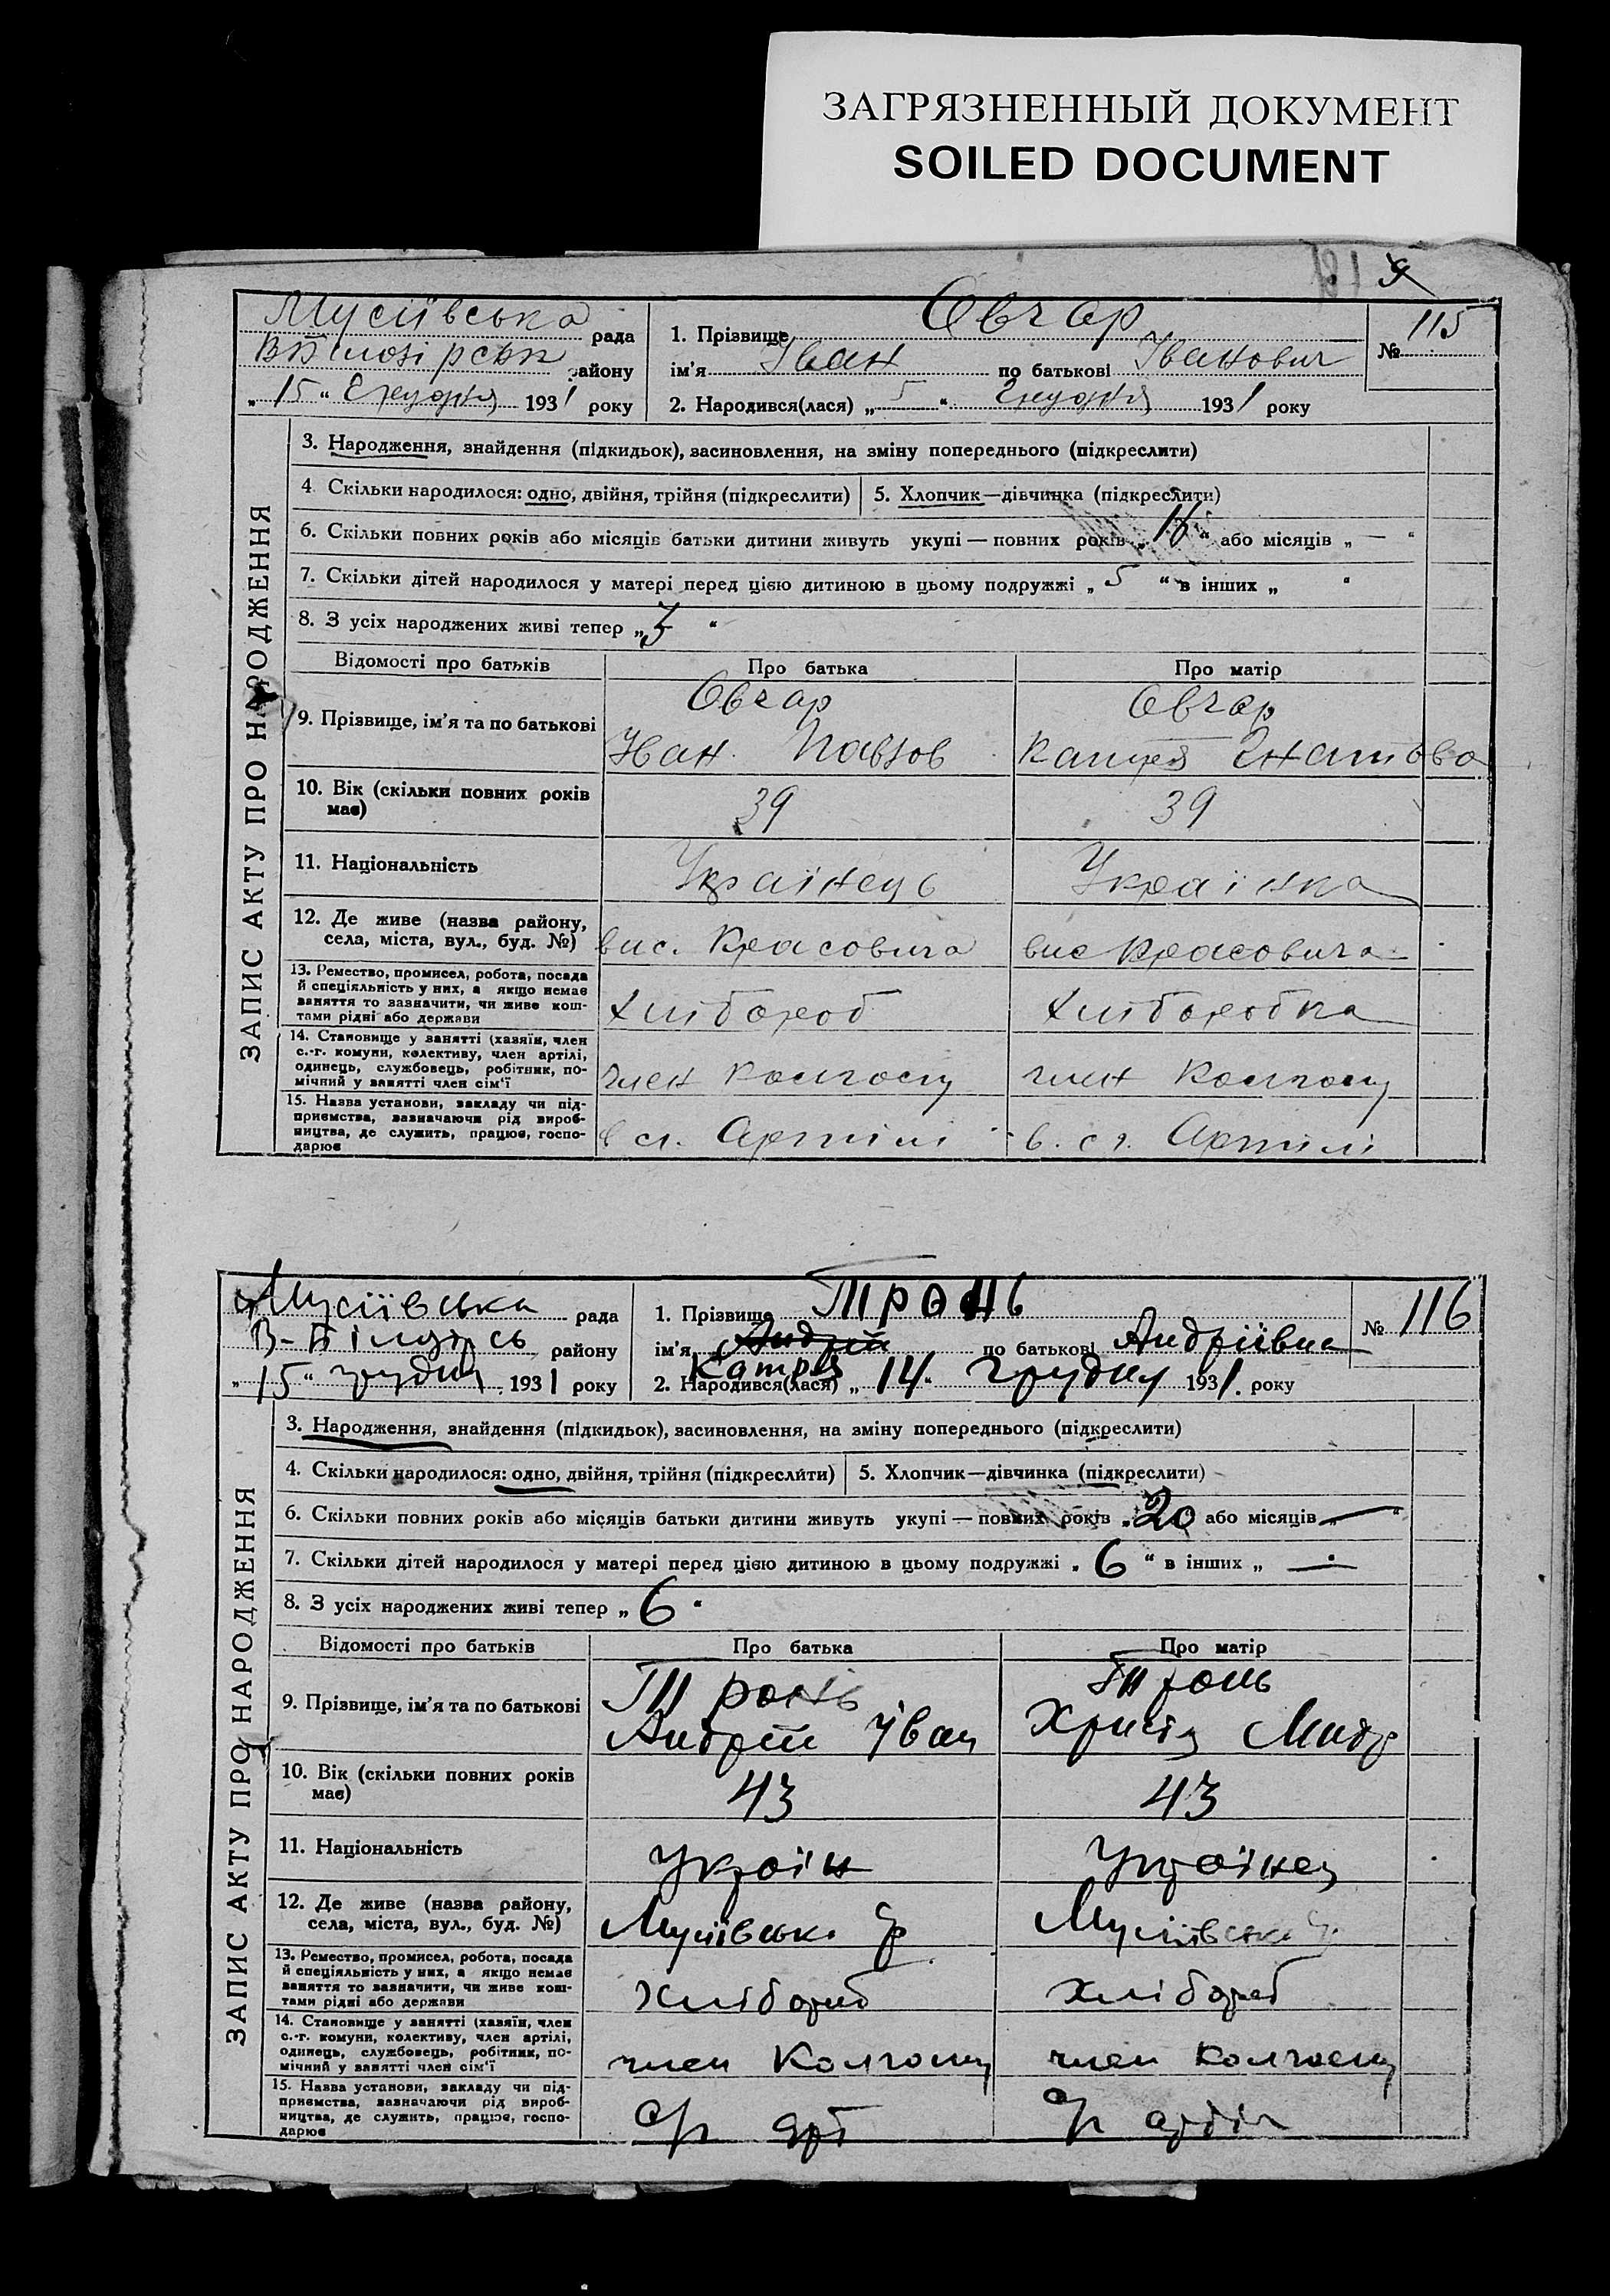 ЗАГРЯЗНЕННЫЙ ДОКУМЕНТ
SOILED DOCUMENT
Мусіївська рада
району
„15“ Грудня 1931 року
1. Прізвище Овчар
ім'я Іван по батькові Іванович
2. Народився(лася) „5“ Грудня 1931 року
№ 115
ЗАПИС АКТУ ПРО НАРОДЖЕННЯ
3. Народження, знайдення (підкидьок), засиновлення, на зміну попереднього (підкреслити)
4. Скільки народилося: одно, двійня, трійня (підкреслити)
5. Хлопчик—дівчинка (підкреслити)
6. Скільки повних років або місяців батьки дитини живуть укупі — повних років „ “ або місяців „ — “
7. Скільки дітей народилося у матері перед цією дитиною в цьому подружжі „ 5 “ в інших „ “
8. З усіх народжених живі тепер „ “
Відомості про батьків
Про батька
Про матір
9. Прізвище, ім'я та по батькові
Овчар
Іван Павлов
Овчар
10. Вік (скільки повних років має)
39
39
11. Національність
Українець
Українка
12. Де живе (назва району, села, міста, вул., буд. №)
вис. Красовича
вис Красовича
13. Ремество, промисел, робота, посада й спеціяльність у них, а якщо немає заняття то зазначити, чи живе коштами рідні або держави
Хлібороб
Хліборобка
14. Становище у занятті (хазяїн, член с.-г. комуни, колективу, член артілі, одинець, службовець, робітник, помічний у занятті член сім'ї
член колгоспу
член колгоспу
15. Назва установи, закладу чи підприємства, зазначаючи рід виробництва, де служить, працює, господарює
в сг. Артілі
в. сг. Артілі
Мусіївська рада
району
„15“ грудня 1931 року
1. Прізвище Тронь
ім'я Андрій по батькові Андріївна
Катря
2. Народився(лася) „14“ грудня 1931. року
№ 116
ЗАПИС АКТУ ПРО НАРОДЖЕННЯ
3. Народження, знайдення (підкидьок), засиновлення, на зміну попереднього (підкреслити)
4. Скільки народилося: одно, двійня, трійня (підкреслити)
5. Хлопчик—дівчинка (підкреслити)
6. Скільки повних років або місяців батьки дитини живуть укупі — повних років „20“ або місяців „ — “
7. Скільки дітей народилося у матері перед цією дитиною в цьому подружжі „ 6 “ в інших „ — “
8. З усіх народжених живі тепер „ 6 “
Відомості про батьків
Про батька
Про матір
9. Прізвище, ім'я та по батькові
Тронь
Андрій Іван
Тронь
Христя Митр
10. Вік (скільки повних років має)
43
43
11. Національність
Україн
Українец
12. Де живе (назва району, села, міста, вул., буд. №)
Мусіївськ.
Мусіївськ
13. Ремество, промисел, робота, посада й спеціяльність у них, а якщо немає заняття то зазначити, чи живе коштами рідні або держави
хлібороб
хлібороб
14. Становище у занятті (хазяїн, член с.-г. комуни, колективу, член артілі, одинець, службовець, робітник, помічний у занятті член сім'ї
член колгоспу
член колгоспу
15. Назва установи, закладу чи підприємства, зазначаючи рід виробництва, де служить, працює, господарює
с/г арт
с/г артіл